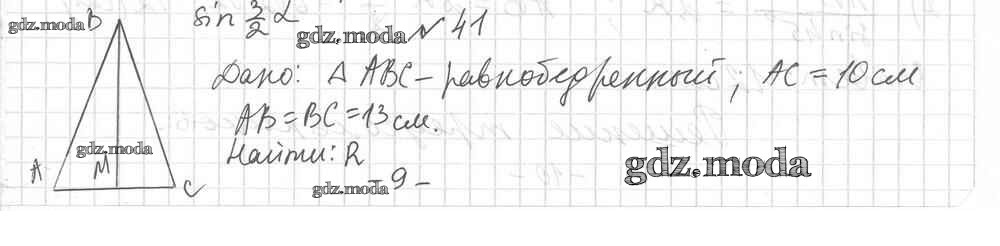 sin 3/2 α
gdz.moda B
gdz.moda № 41
Дано: Δ ABC – равнобедренный; AC = 10 см
AB = BC = 13 см.
Найти: R
gdz.moda
A M C
gdz.moda
gdz.moda
– 9 –